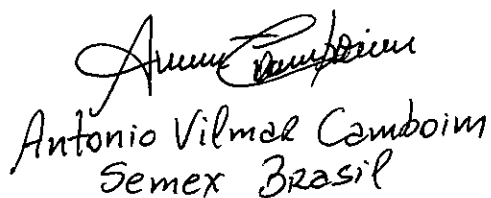 Antonio Vilmar Camboim
Semex Brasil